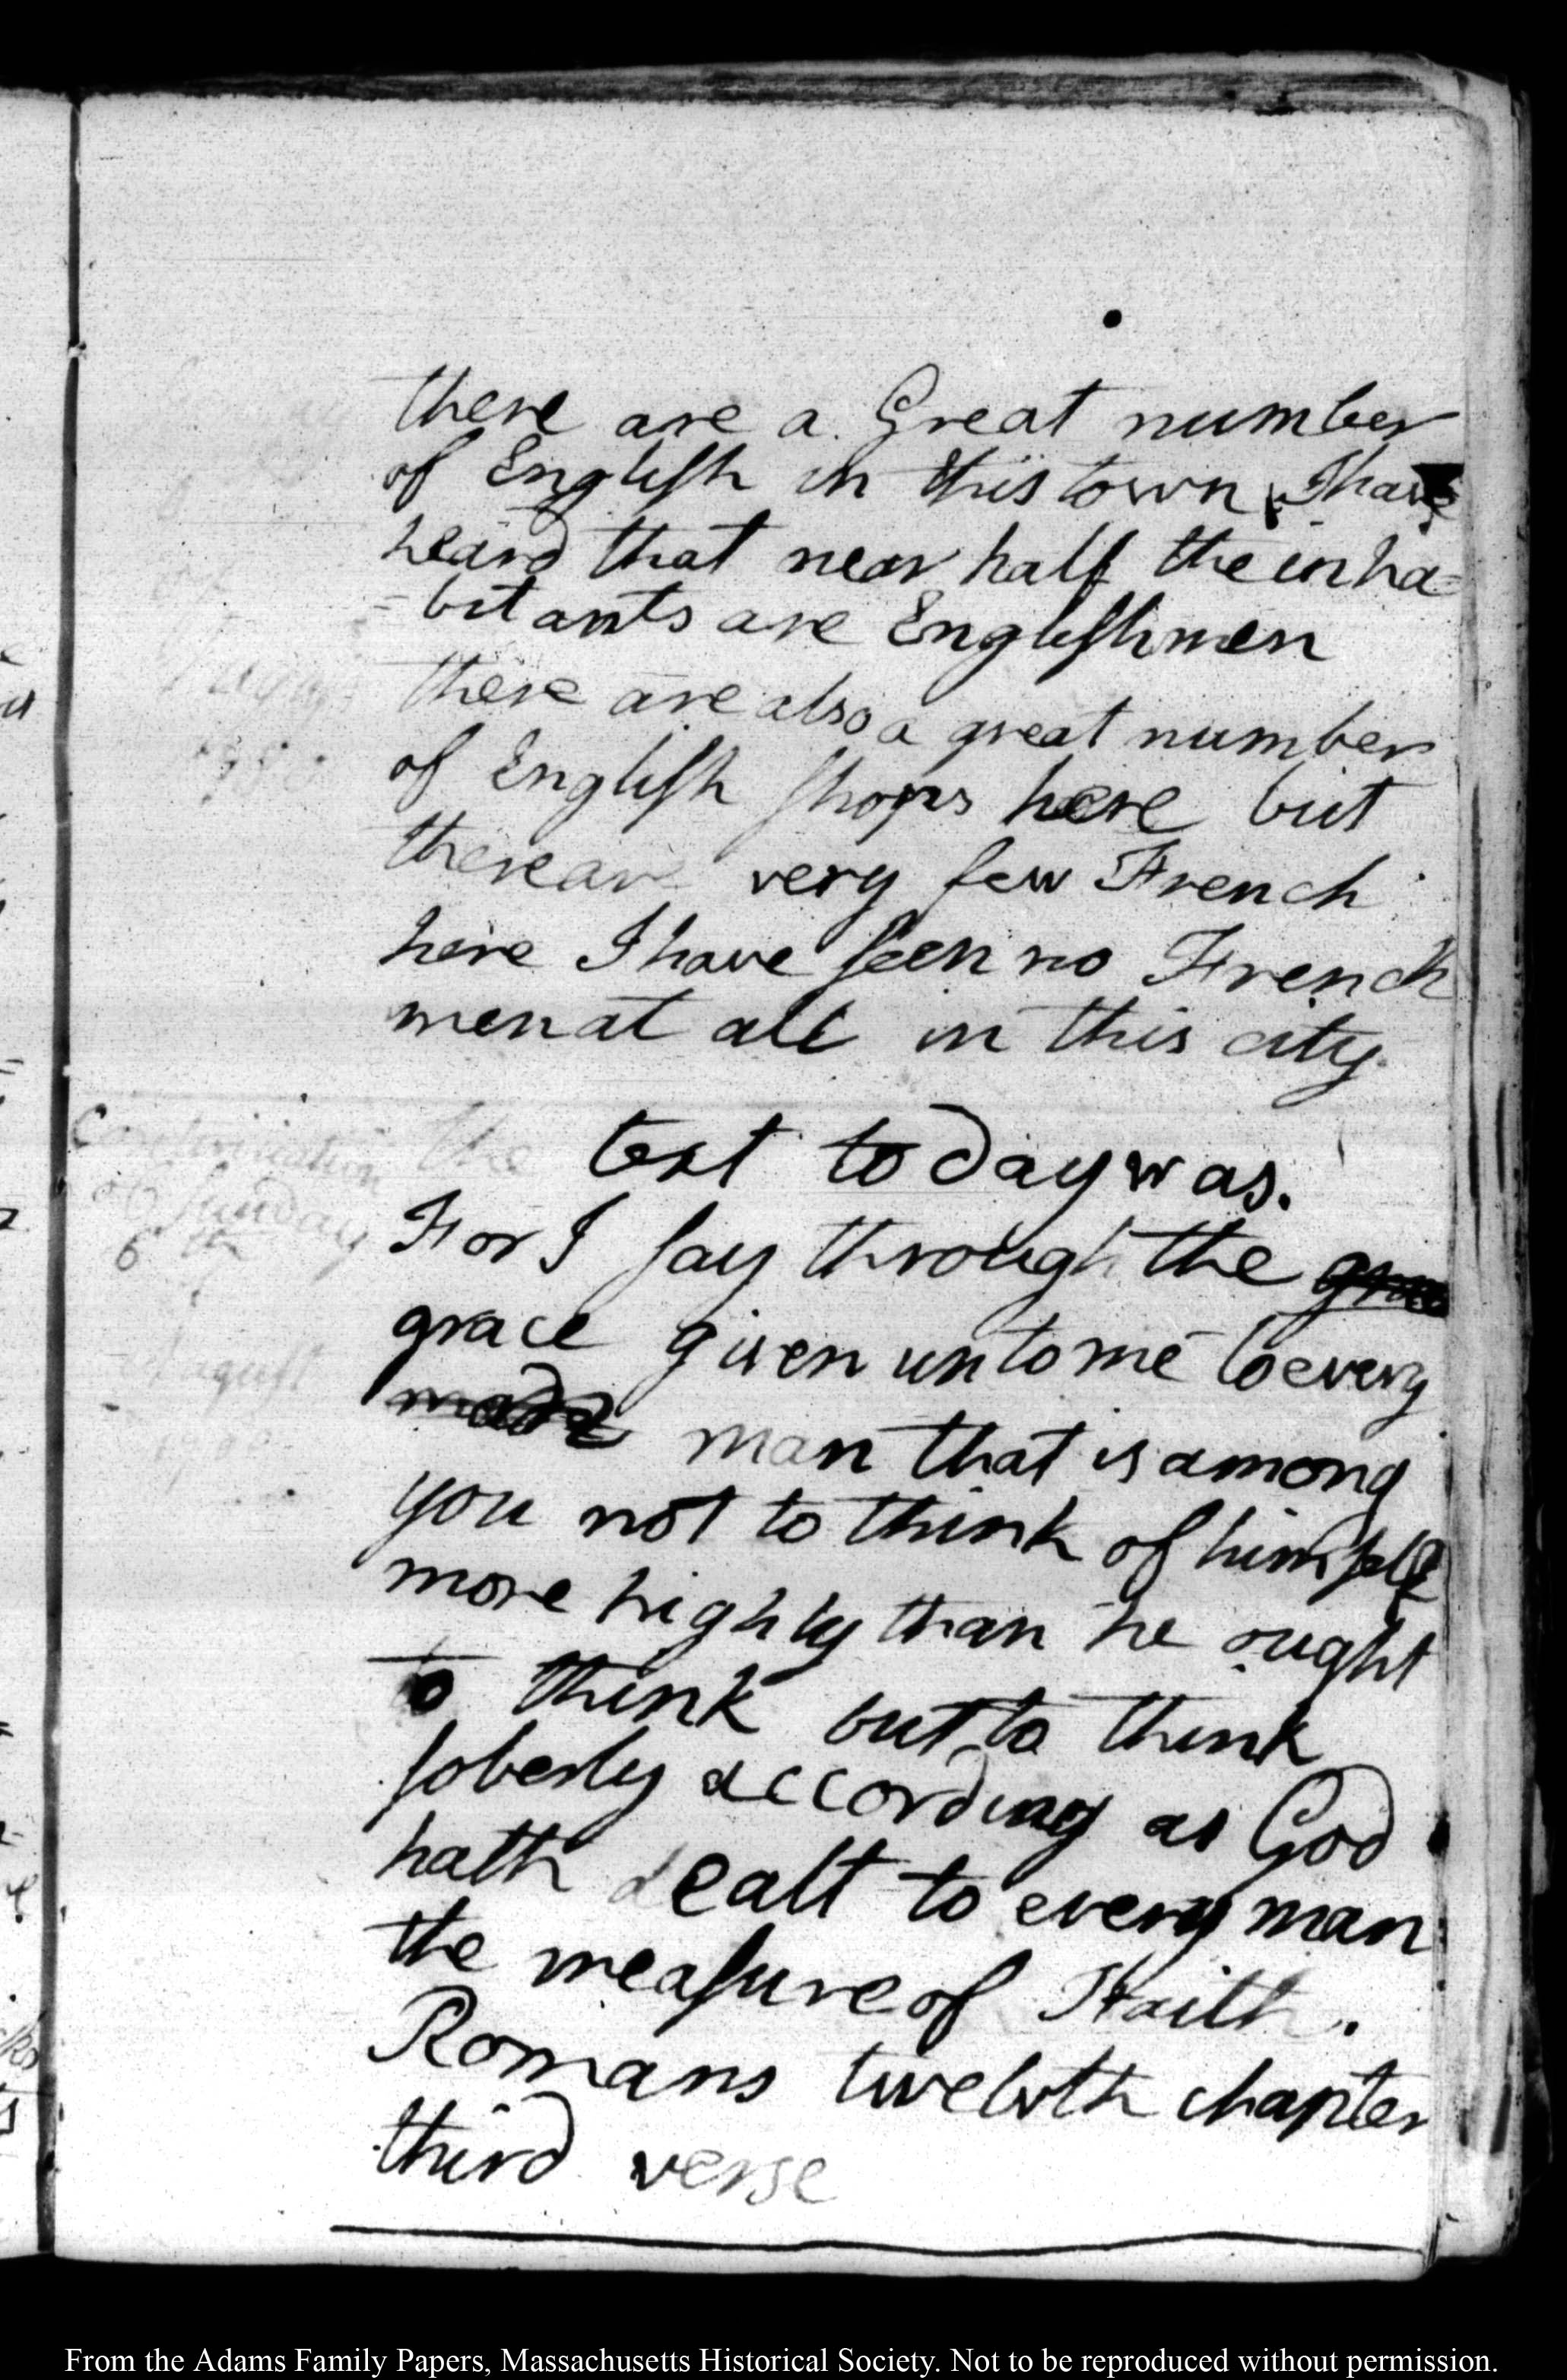 there are a Great number
of English in this town, I have
heard that near half the inha=
=bitants are Englishmen
there are also a great number
of English shops here but
there are very few French
here I have seen no French
men at all in this city.
Continuation
of Sunday
6th
August
1780
the text to day was.
For I say through the
grace given unto me to every
made man that is among
you not to think of himself
more highly than he ought
to think but to think
soberly according as God
hath dealt to every man
the measure of Faith.
Romans twelvth chapter
third verse
From the Adams Family Papers, Massachusetts Historical Society. Not to be reproduced without permission.